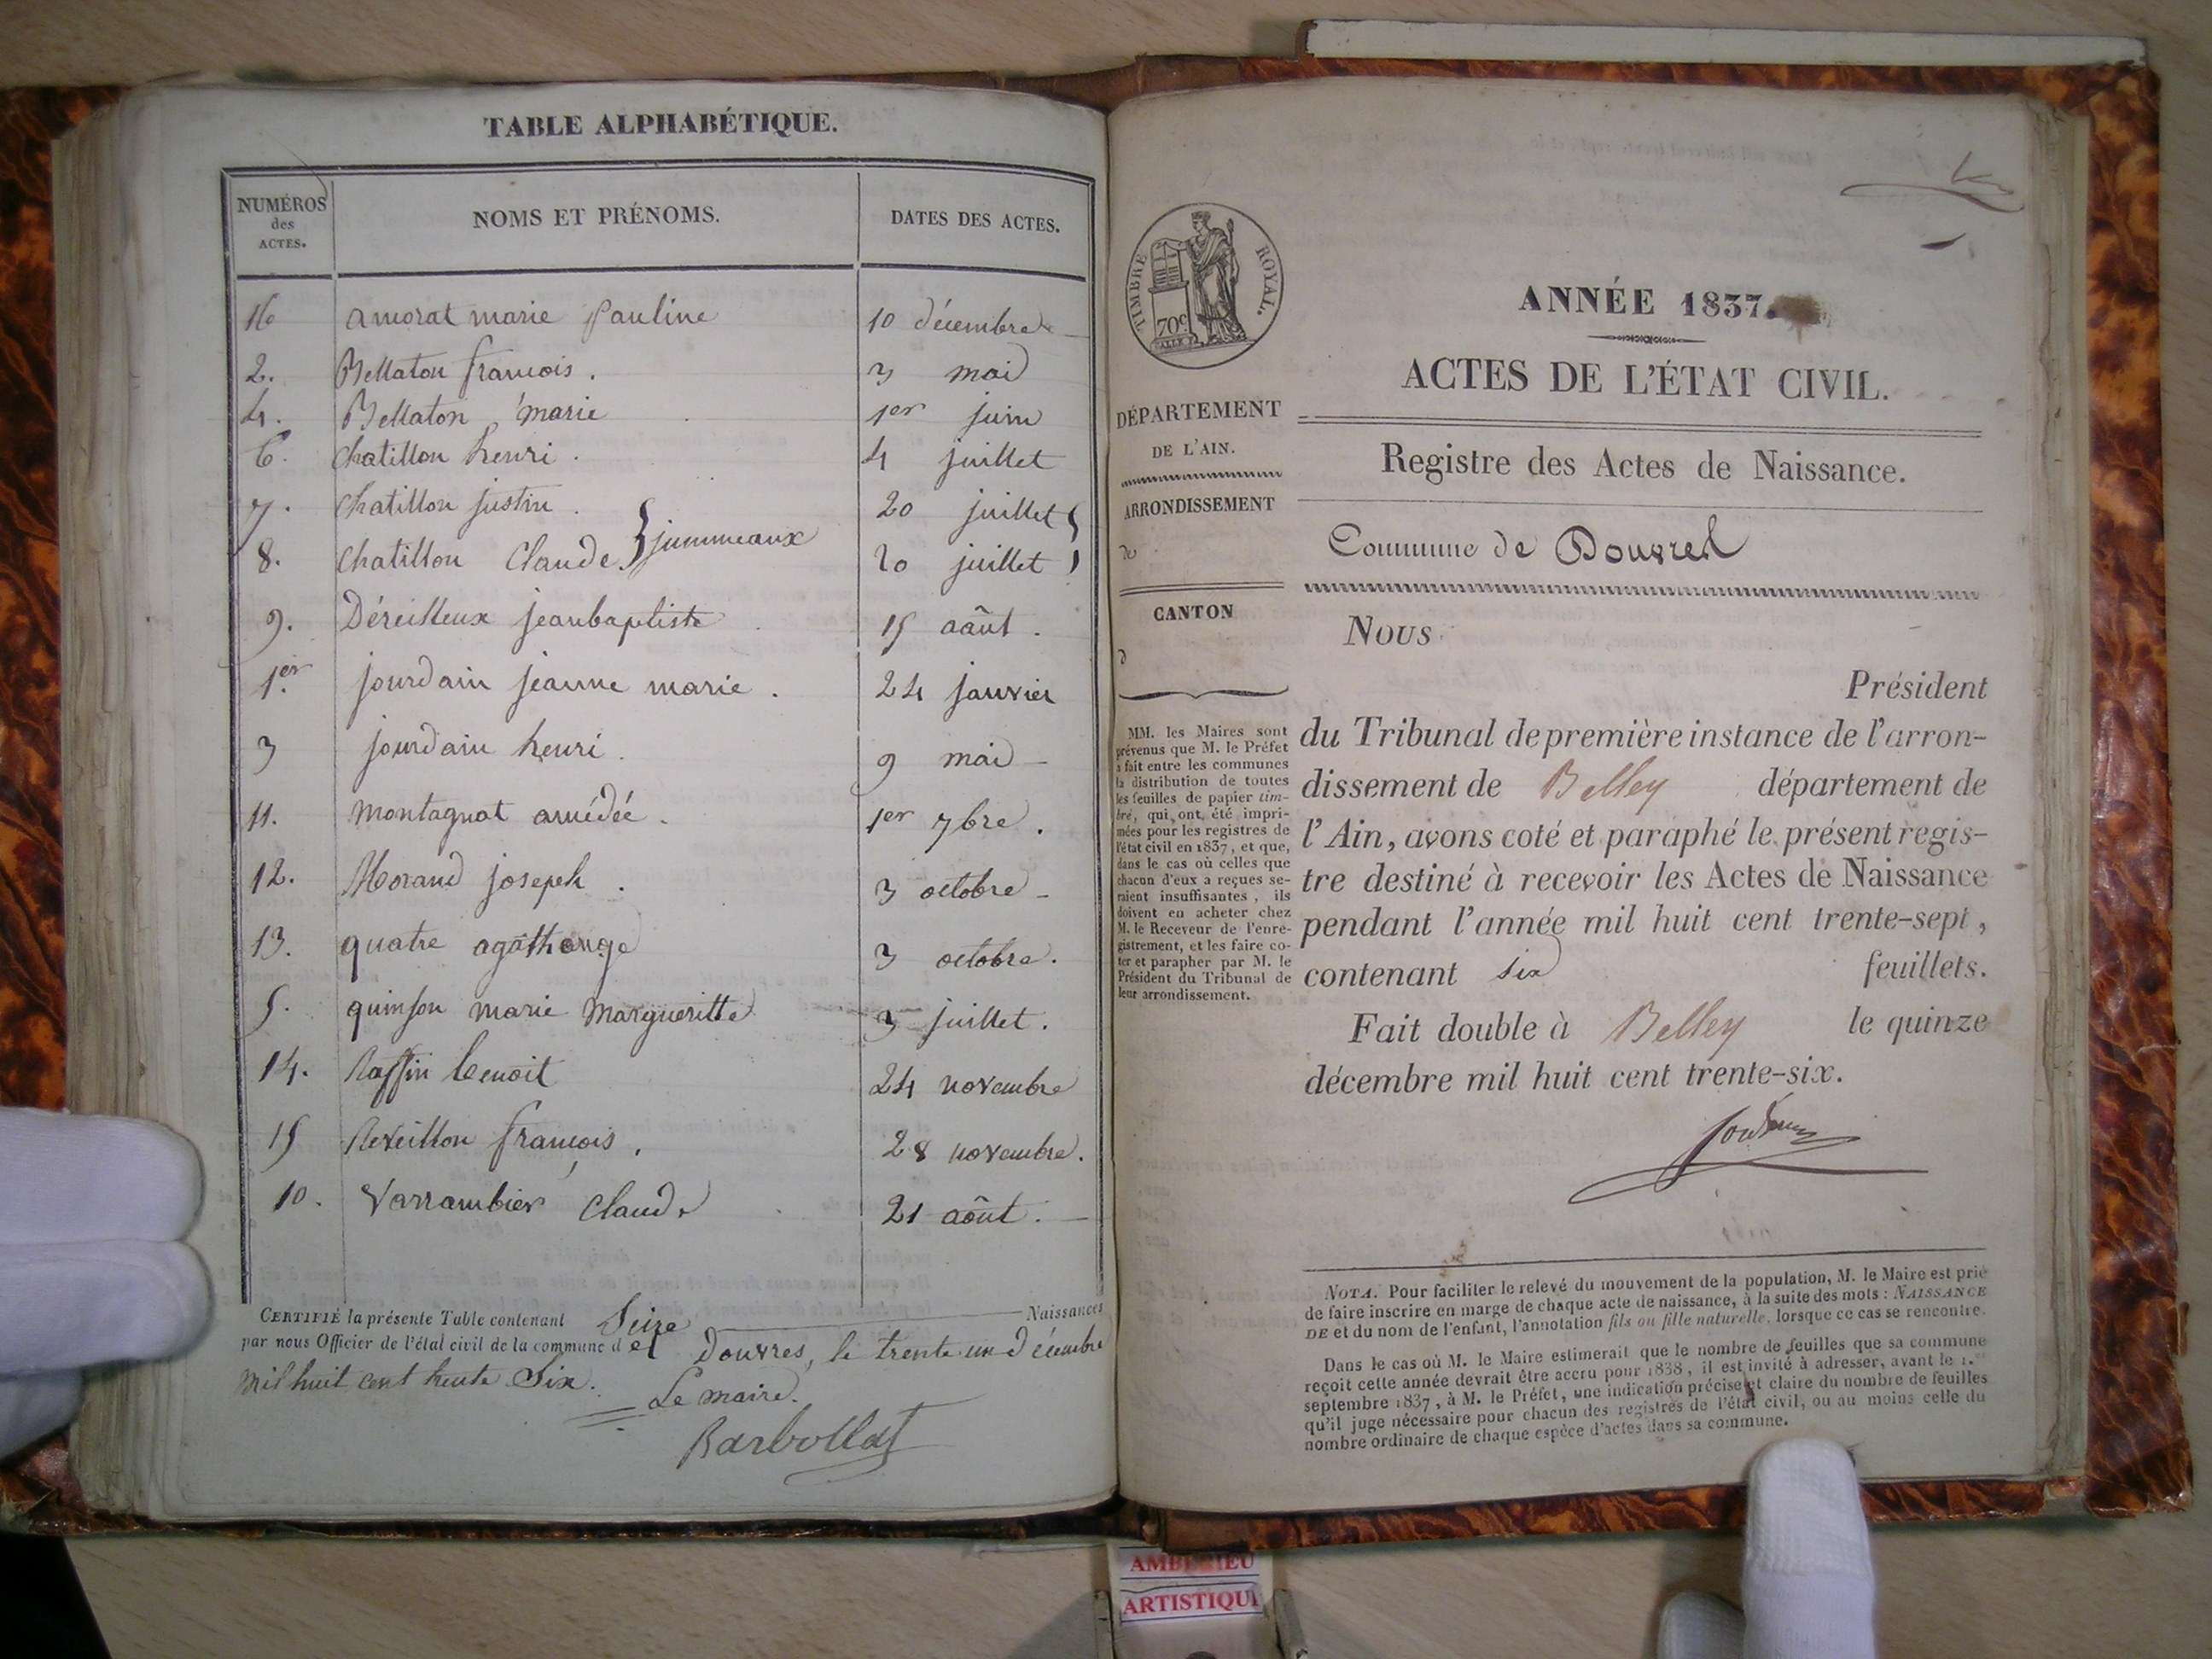 TABLE ALPHABÉTIQUE.
NUMÉROS des ACTES. NOMS ET PRÉNOMS. DATES DES ACTES.
16 amorat marie pauline 10 décembre
2. Bellaton francois. 3 mai
4. Bellaton marie 1er juin
6. chatillon henri. 4 juillet
7. chatillon justin. 20 juillet
jummeaux
8. chatillon Claude. 20 juillet
9. Déreilleux jeanbaptiste 15 août.
1er. jourdain jeanne marie. 24 janvier
3 jourdain henri. 9 mai
11. montagnat amédée. 1er 7bre.
12. Morand joseph. 3 octobre
13. quatre agathange 3 octobre.
5. quinson marie Margueritte 3 juillet.
14. Raffin benoit 24 novembre
15 Reveillon francois. 28 novembre.
10. Varrambier Claude 21 août.
CERTIFIÉ la présente Table contenant Seize Naissances
par nous Officier de l'état civil de la commune de Douvres, le trente un décembre
mil huit cent trente Six.
Le maire.
Barbollat
TIMBRE ROYAL.
70c
ANNÉE 1837.
ACTES DE L'ÉTAT CIVIL.
Registre des Actes de Naissance.
Commune de Douvres
DÉPARTEMENT
DE L'AIN.
ARRONDISSEMENT
de
CANTON
d
MM. les Maires sont
prévenus que M. le Préfet
a fait entre les communes
la distribution de toutes
les feuilles de papier tim-
bré, qui ont été impri-
mées pour les registres de
l'état civil en 1837, et que,
dans le cas où celles que
chacun d'eux a reçues se-
raient insuffisantes, ils
doivent en acheter chez
M. le Receveur de l'enre-
gistrement, et les faire co-
ter et parapher par M. le
Président du Tribunal de
leur arrondissement.
NOUS
Président
du Tribunal de première instance de l'arron-
dissement de Belley département de
l'Ain, avons coté et paraphé le présent regis-
tre destiné à recevoir les Actes de Naissance
pendant l'année mil huit cent trente-sept,
contenant six feuillets.
Fait double à Belley le quinze
décembre mil huit cent trente-six.
NOTA. Pour faciliter le relevé du mouvement de la population, M. le Maire est prié
de faire inscrire en marge de chaque acte de naissance, à la suite des mots : NAISSANCE
DE et du nom de l'enfant, l'annotation fils ou fille naturelle, lorsque ce cas se rencontre.
Dans le cas où M. le Maire estimerait que le nombre de feuilles que sa commune
reçoit cette année devrait être accru pour 1838, il est invité à adresser, avant le 1.er
septembre 1837, à M. le Préfet, une indication précise et claire du nombre de feuilles
qu'il juge nécessaire pour chacun des registres de l'état civil, ou au moins celle du
nombre ordinaire de chaque espèce d'actes dans sa commune.
AMBERIEU
ARTISTIQUE